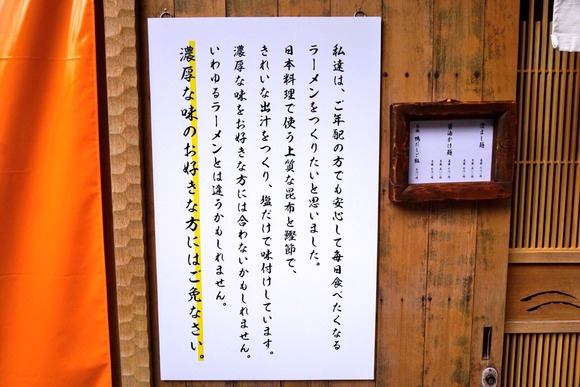 私達は、ご年配の方でも安心して毎日食べたくなる
ラーメンをつくりたいと思いました。
日本料理で使う上質な昆布と鰹節で、
きれいな出汁をつくり、塩だけで味付けしています。
濃厚な味をお好きな方には合わないかもしれません。
いわゆるラーメンとは違うかもしれません。
濃厚な味のお好きな方にはご免なさい。
醤油かけ麺